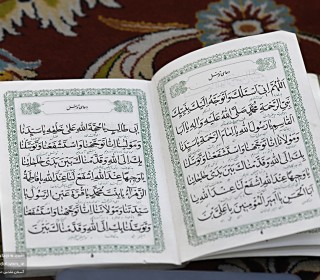 دعای توسل
اَللّٰهُمَّ اِنّى اَسْئَلُكَ وَاَتَوَجَّهُ اِلَيْكَ بِنَبِيِّكَ
نَبِىِّ الرَّحْمَةِ مُحَمَّدٍ صَلَّى اللهُ عَلَيْهِ وَالِهِ يا اَبَا
الْقاسِمِ يا رَسُولَ اللهِ يا اِمامَ الرَّحْمَةِ يا سَيِّدَنا
وَمَوْلانا اِنّا تَوَجَّهْنا وَاسْتَشْفَعْنا وَتَوَسَّلْنا
بِكَ اِلَى اللهِ وَقَدَّمْناكَ بَيْنَ يَدَىْ حاجاتِنا
يا وَجيهاً عِنْدَ اللهِ اِشْفَعْ لَنا عِنْدَ اللهِ يا اَبَا
الْحَسَنِ يا اَميرَ الْمُؤْمِنينَ يا عَلِىَّ بْنَ
دعای توسل
اَبى طالِبٍ يا حُجَّةَ اللهِ عَلى خَلْقِهِ يا سَيِّدَنا
وَمَوْلانا اِنّا تَوَجَّهْنا وَاسْتَشْفَعْنا وَتَوَسَّلْنا
بِكَ اِلَى اللهِ وَقَدَّمْناكَ بَيْنَ يَدَىْ حاجاتِنا
يا وَجيهاً عِنْدَ اللهِ اِشْفَعْ لَنا عِنْدَ اللهِ يا فاطِمَةَ
الزَّهْراءُ يا بِنْتَ مُحَمَّدٍ يا قُرَّةَ عَيْنِ الرَّسُولِ يا
سَيِّدَتَنا وَمَوْلاتَنا اِنّا تَوَجَّهْنا وَاسْتَشْفَعْنا
وَتَوَسَّلْنا بِكِ اِلَى اللهِ وَقَدَّمْناكِ بَيْنَ